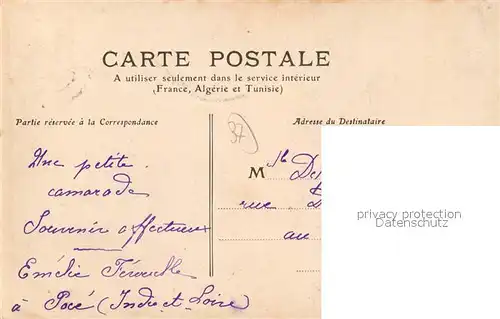 CARTE POSTALE
A utiliser seulement dans le service intérieur
(France, Algérie et Tunisie)
Partie réservée à la Correspondance
Adresse du Destinataire
37
Une petite
camarade
Souvenir affectueux
Emélie
à Pocé (Indre et Loire)
M De
rue
au
privacy protection
Datenschutz